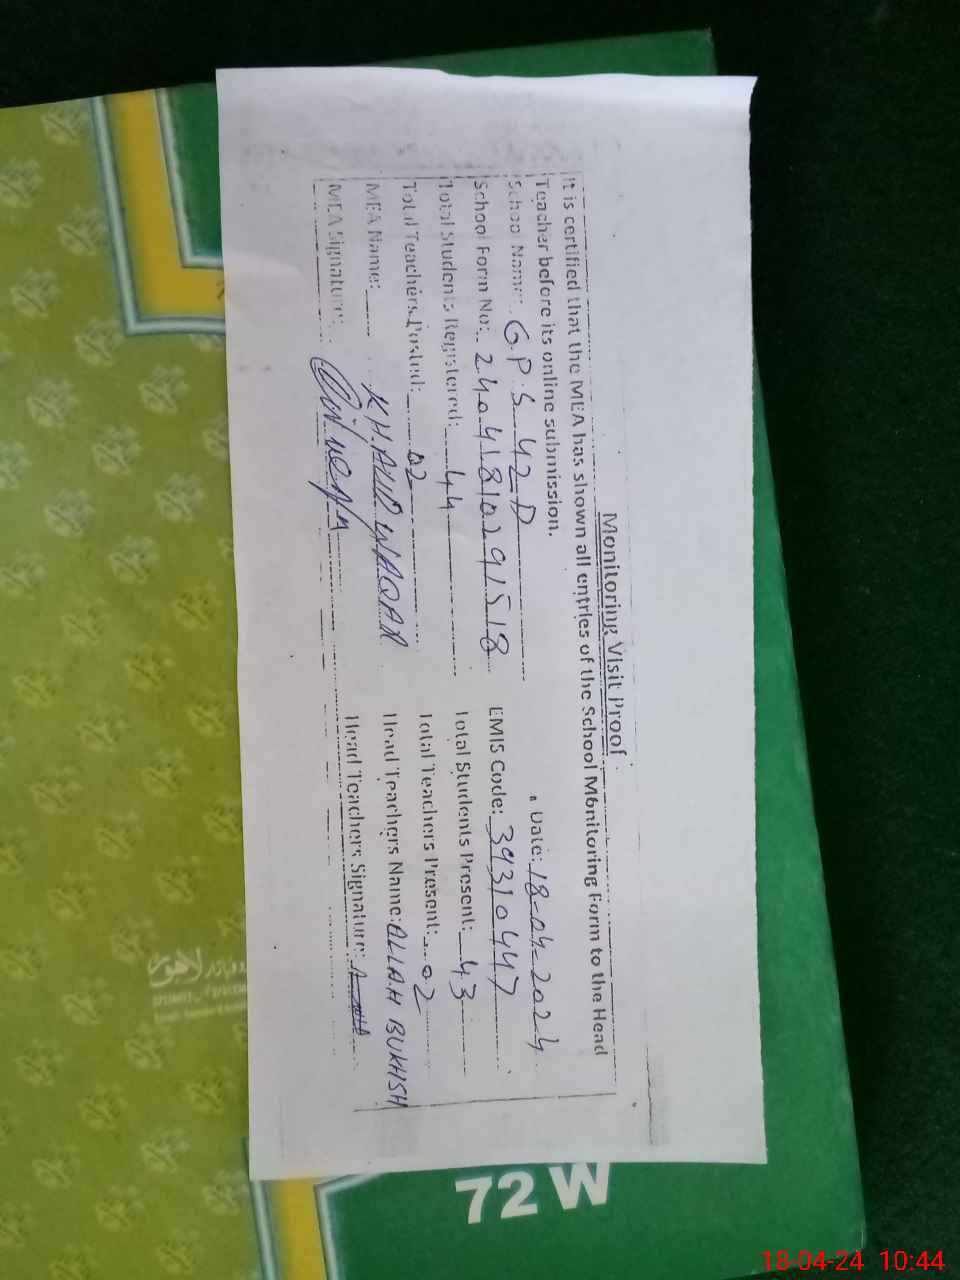 Monitoring Visit Proof
It is certified that the MEA has shown all entries of the School Monitoring Form to the Head
Teacher before its online submission.
Date: 18-04-2024
School Name: G.P.S 42-D
School Form No: 24041810291518 EMIS Code: 39310447
Total Students Registered: 44 Total Students Present: 43
Total Teachers Posted: 02 Total Teachers Present: 02
MEA Name: WAQAR Head Teachers Name: ALLAH BUKHSH
MEA Signature: Head Teachers Signature:
لاہور
72 W
18-04-24 10:44